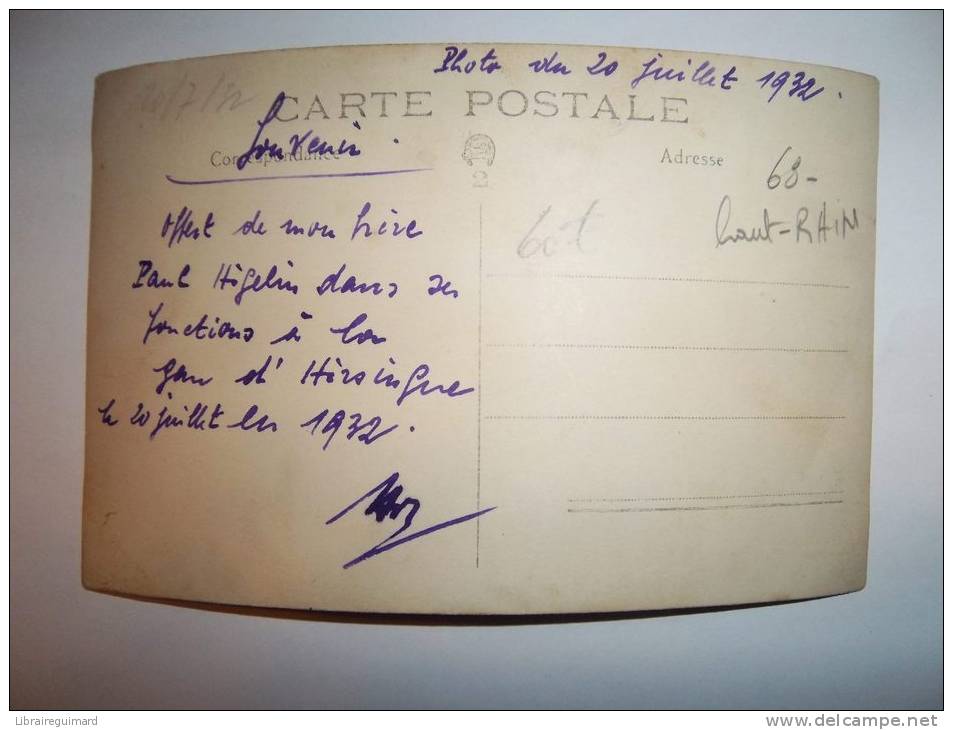 Photo du 20 juillet 1932.
20/7/32
CARTE POSTALE
Souvenir.
Correspondance
Adresse
2
68-
haut-RHIN
Offert de mon frère
Paul Higelin dans ses
fonctions à la
gare d'Hirsingue
le 20 juillet en 1932.
Libraireguimard
www.delcampe.net